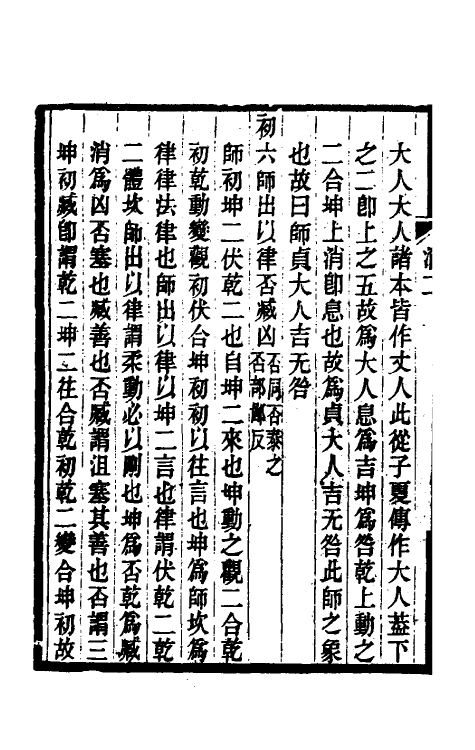 大人大人諸本皆作丈人此從子夏傳作大人蓋下
之二卽上之五故爲大人息爲吉坤爲咎乾上動之
二合坤上消卽息也故爲貞大人吉无咎此師之象
也故曰師貞大人吉无咎
初六師出以律否臧凶否同否泰之否部鄙反
師初坤二伏乾二也自坤二來也坤動之觀二合乾
初乾動變觀初伏合坤初初以往言也坤爲師坎爲
律律法律也師出以律以坤二言也律謂伏乾二乾
二體坎師出以律謂柔動必以剛也坤爲否乾爲臧
消爲凶否塞也臧善也否臧謂沮塞其善也否謂三
坤初臧卽謂乾二坤二往合乾初乾二變合坤初故